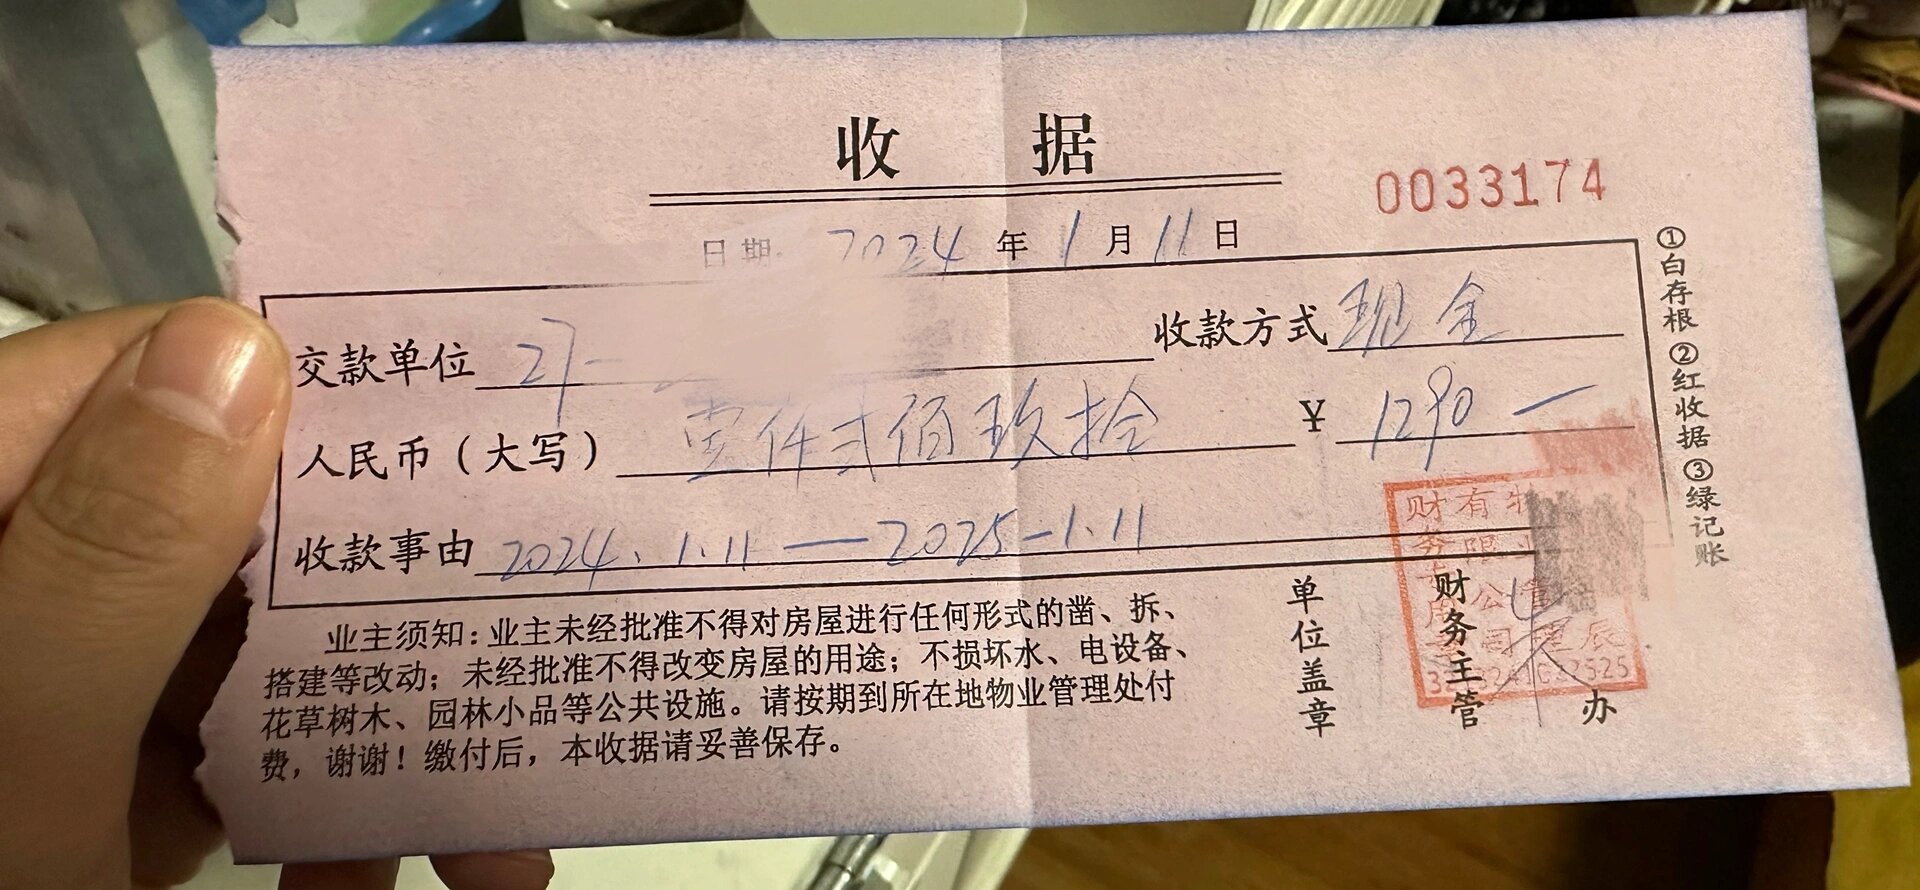 收 据
0033174
日期 2024 年 1 月 11 日
交款单位 27- 收款方式 现金
人民币（大写） 壹仟贰佰玖拾 ¥ 1290 —
收款事由 2024.1.11 — 2025-1.11
业主须知：业主未经批准不得对房屋进行任何形式的凿、拆、
搭建等改动；未经批准不得改变房屋的用途；不损坏水、电设备、
花草树木、园林小品等公共设施。请按期到所在地物业管理处付
费，谢谢！缴付后，本收据请妥善保存。
单位盖章
财务主管
办
①白存根 ②红收据 ③绿记账